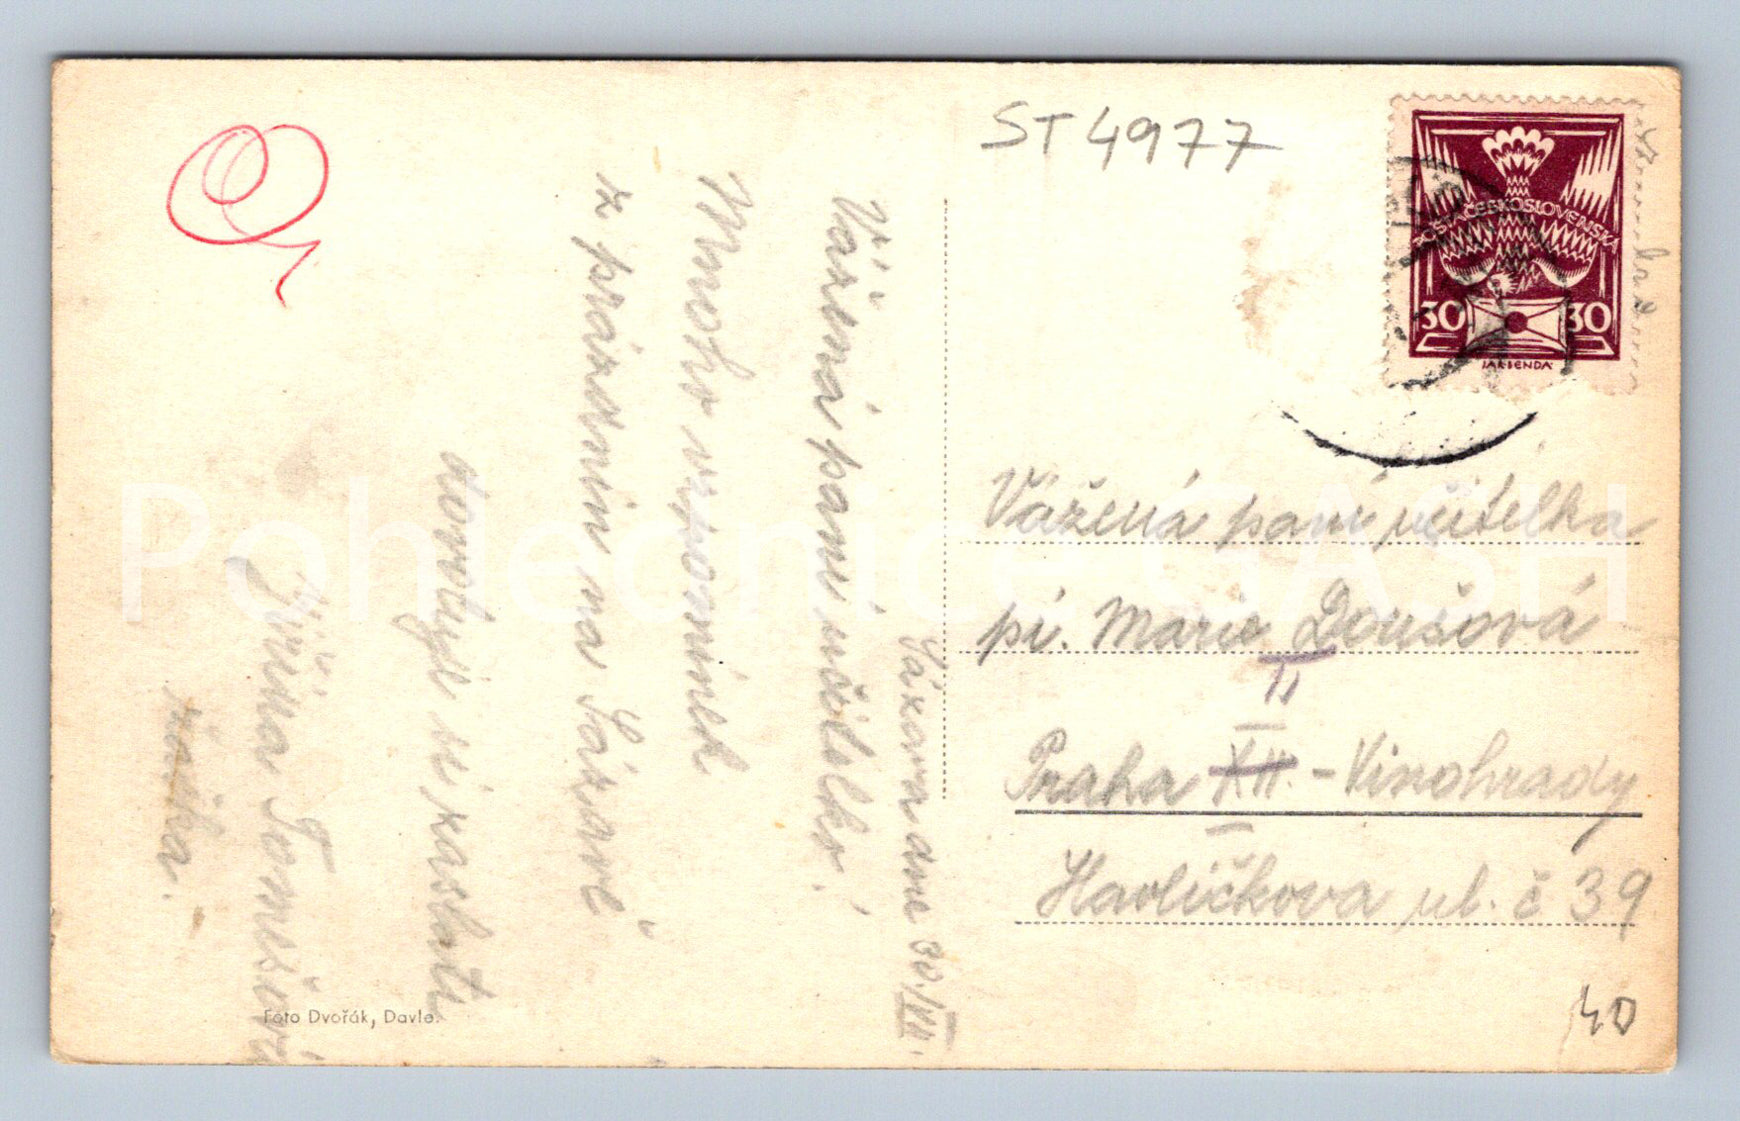 ST 4977
POŠTA ČESKOSLOVENSKÁ
30 30
JAK. BENDA
Sázava dne 30./VII.
Vážená paní učitelko!
Mnoho vzpomínek
z prázdnin na Sázavě
dovoluje si zaslati
Jiřina Tomešová
žačka.
Vážená paní učitelka
pí. Marie Doušová
II
Praha XII. - Vinohrady
Havlíčkova ul. č 39
40
Foto Dvořák, Davle.
Pohlednice GASH